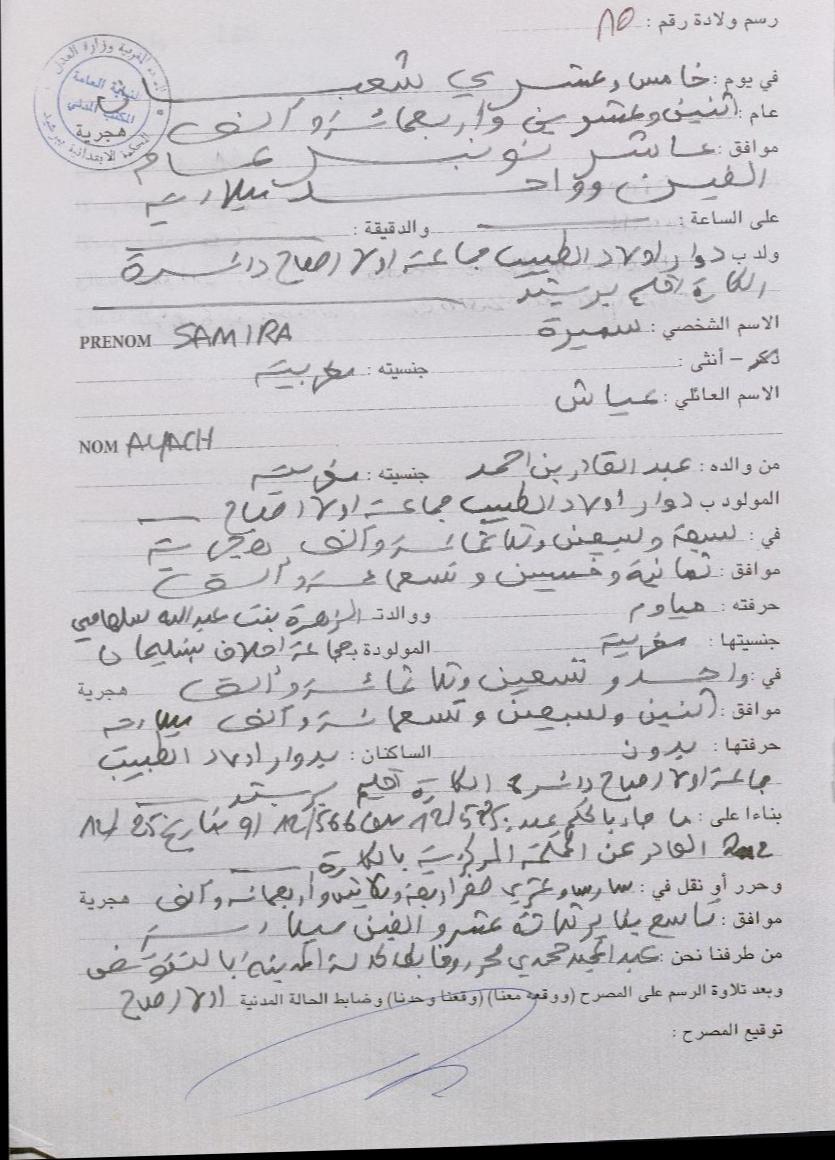 رسم ولادة رقم : 85
المملكة المغربية وزارة العدل
النيابة العامة
المحكمة الابتدائية ببرشيد
في يوم : خامس وعشري شعبان
عام : اثنين وعشرين واربعمائة وألف هجرية
موافق : عاشر نونبر عام
الفين وواحد ميلادية
على الساعة : والدقيقة :
ولد ب دوار اولاد الطبيب جماعة اولاد اصباح دائرة
الكارة اقليم برشيد
الاسم الشخصي : سميرة PRENOM SAMIRA
ذكر – أنثى : جنسيته : مغربية
الاسم العائلي : عياش
NOM AYACH
من والده : عبد القادر بن احمد جنسيته : مغربية
المولود ب دوار اولاد الطبيب جماعة اولاد اصباح
في : سبعة وسبعين وثلاثمائة وألف هجرية
موافق : ثمانية وخمسين وتسعمائة وألف
حرفته : مياوم ووالدتـ الزهرة بنت عبد الله
جنسيتها : مغربية المولودة بجماعة
في : واحد وتسعين وثلاثمائة وألف هجرية
موافق : اثنين وسبعين وتسعمائة وألف ميلادية
حرفتها : بدون الساكنان : بدوار اولاد الطبيب
جماعة اولاد اصباح دائرة الكارة اقليم برشيد
بناءا على : ما جاء بالحكم عدد : 12/566 بتاريخ 25/12/
2012 الصادر عن المحكمة المركزية بالكارة
وحرر أو نقل في : سادس وعشري صفر اربعة وثلاثين واربعمائة وألف هجرية
موافق : تاسع يناير ثلاثة عشر والفين ميلادية
من طرفنا نحن : عبد المجيد حمدي محرر وضابط الحالة المدنية بالتفويض
وبعد تلاوة الرسم على المصرح (ووقعه معنا) (وقعنا وحدنا) وضابط الحالة المدنية اولاد اصباح
توقيع المصرح :